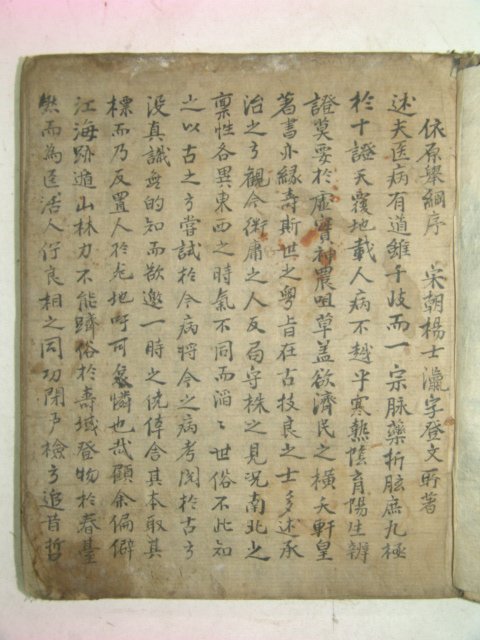 依原擧綱序 宋朝楊士瀛字登文所著
述夫医病有道雖千岐而一宗脉藥折肱庶九極
於十證天覆地載人病不越乎寒熱陰育陽生辨
證莫要於虛實神農咀草盖欲濟民之橫夭軒皇
著書亦緣壽斯世之粤旨在古技良之士多述承
治之方觀今衒庸之人反局守株之見况南北之
禀性各異東西之時氣不同而滔〻世俗不此知
之以古之方嘗試於今病將今之病考閱於古方
没真識無的知而欲邀一時之侥倖舍其本取其
標而乃反置人於危地吁可哀憐也哉顧余偏僻
江海跡遁山林力不能躋俗於壽域登物於春臺
然而為医活人行良相之同功閉戶檢方追昔哲